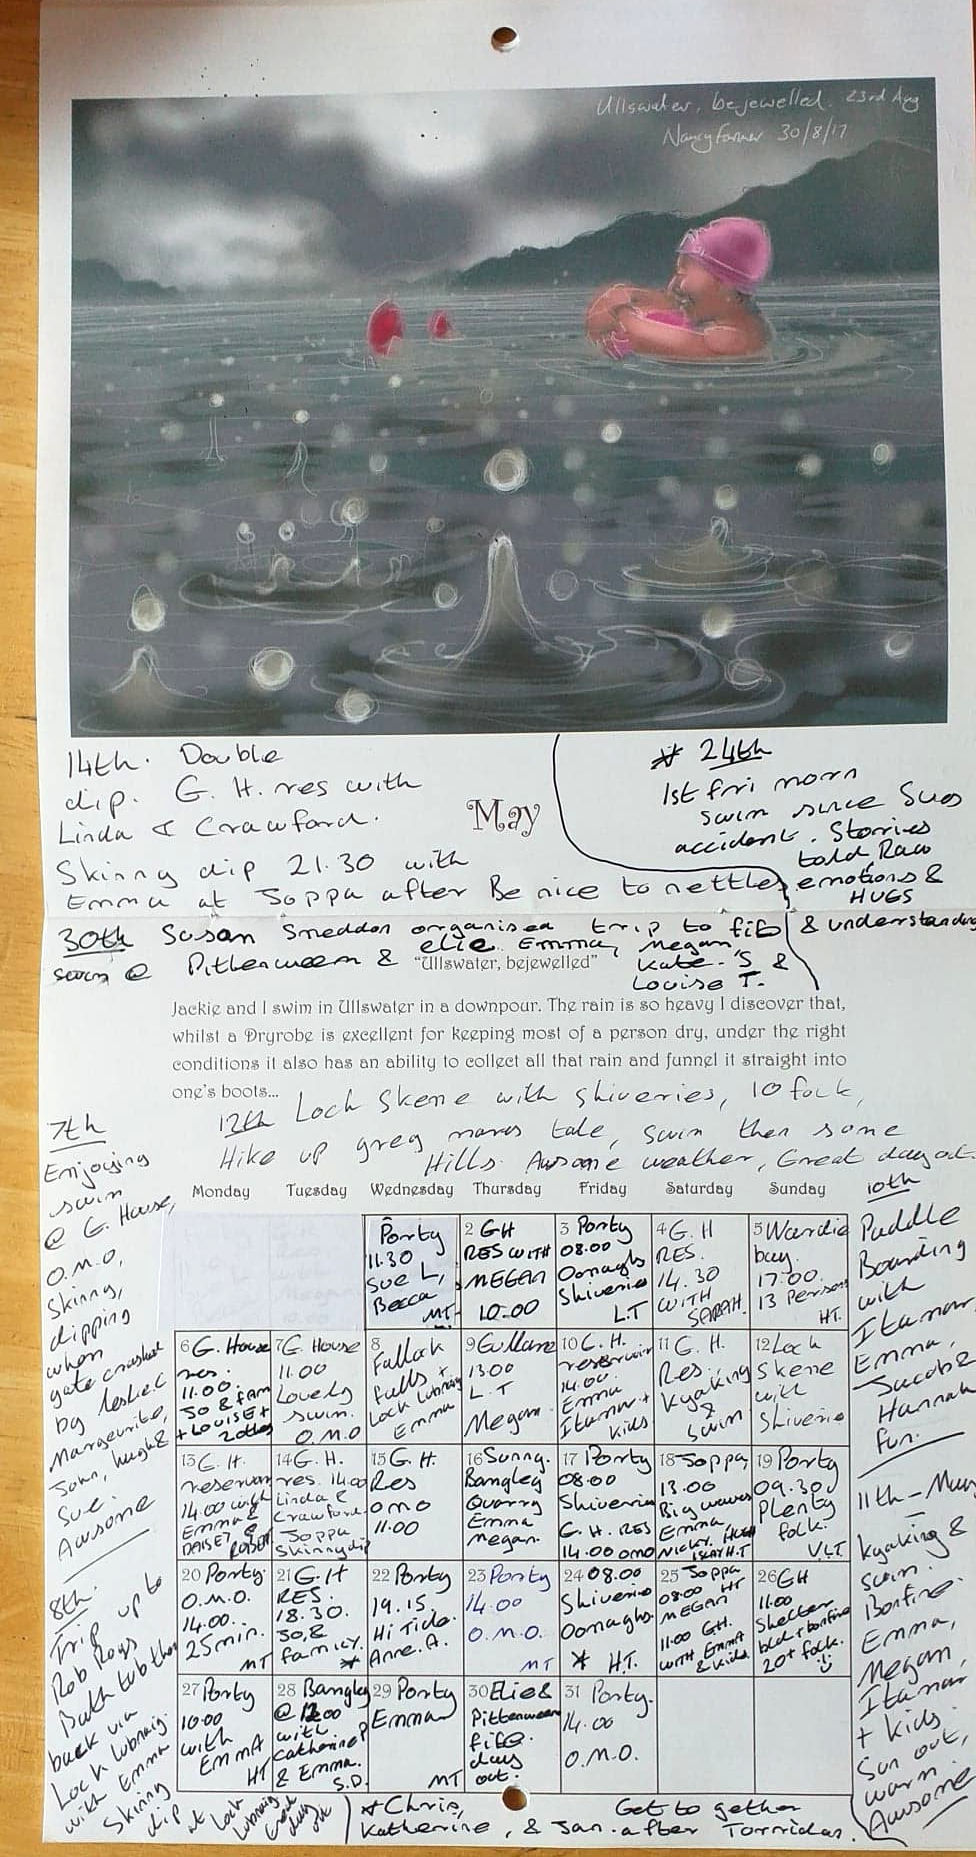 Ullswater, bejewelled. 23rd Aug
Nancy Farmer 30/8/17
14th. Double
dip. G. H. res with
Linda & Crawford.
Skinny dip 21.30 with
Emma at Joppa after Be nice to nettles
May
* 24th
1st fri morn
swim since Sues
accident. Storries
told, Raw
emotions &
HUGS
& understanding
30th Susan Smeddon organised trip to fife
elie. Emma, Megan,
swim @ Pittenweem &
"Ullswater, bejewelled"
Kate. S &
Louise T.
Jackie and I swim in Ullswater in a downpour. The rain is so heavy I discover that,
whilst a Dryrobe is excellent for keeping most of a person dry, under the right
conditions it also has an ability to collect all that rain and funnel it straight into
one's boots...
12th Loch Skene with shiveries, 10 folk,
Hike up grey mares tale, swim then some
Hills. Awsome weather, Great day out.
7th
Enjoying
swim
@ G. House,
O.M.O,
Skinny,
dipping
when
gate crashed
by
Margeurite,
John, hugh &
Sue.
Awsome
8th.
Trip up to
Rob Roys
Bath tub then
back via
Loch Lubnaig.
with Emma
Skinny
dip at Loch
Lubnaig
Monday Tuesday Wednesday Thursday Friday Saturday Sunday
Porty
11.30
Sue L,
Becca
MT
2 GH
RES WITH
MEGAN
10.00
3 Porty
08.00
Oonaghs
Shiverie
L.T
4 G. H
RES.
14.30
WITH
SARAH.
5 Wardie
bay.
17:00
13 Persons
HT.
6 G. House
res.
11.00
Jo & fam
+ LOUISE +
2 others
7 G. House
11.00
Lovely
swim.
O.M.O
8
Fallock
falls +
Loch Lubnaig
Emma
9 Gullane
13:00
L.T
Megan.
10 G. H.
reservoir
14.00
Emma
Itamar +
kids
11 G. H.
Res
Kyaking
&
Swim
12 Loch
Skene
with
Shiverie
13 G. H.
reservoir
14.00 with
Emma &
DAISEY &
ROBERT
14 G. H.
res. 14.00
Linda &
Crawford.
Joppa
Skinnydip
15 G. H.
Res
OMO
11.00
16 Sunny.
Bangley
Quarry
Emma
Megan.
17 Porty
08:00
Shiverie
G. H. RES
14.00 OMO
18 Joppa,
13.00
Big waves
Emma
NICKY, HUGH
ISLAY H.T
19 Porty
09.30
Plenty
folk.
V.L.T
20 Porty.
O.M.O.
14.00.
25min.
MT
21 G.H
RES.
18.30.
Jo, &
family.
*
22 Porty
19.15.
Hi Tide.
Anne. A.
23 Porty
14.00
O.M.O.
MT
24 08.00
Shiverie
Oonaghs.
* H.T.
25 Joppa
08.00 HT
MEGAN
11.00 GH.
WITH EMMA
& Kids.
26 GH
11.00
Shelter
bld + bonfire
20+ folk.
27 Porty
10.00
with
EMMA
HT
28 Bangley
@ 12.00
with
Catherine P
& Emma.
S.D.
29 Porty
Emma
MT
30 Elie &
Pittenweem
fife.
day
out.
31 Porty.
14.00
O.M.O.
10th
Paddle
Boarding
with
Itamar
Emma,
Jacob &
Hannah
Fun.
11th - May
kyaking &
swim.
Bonfire.
Emma,
Megan,
Itamar
+ kids.
Sun out,
warm
Awsome
* Chris, Get to gether
Katherine, & Jan. after Torridas.